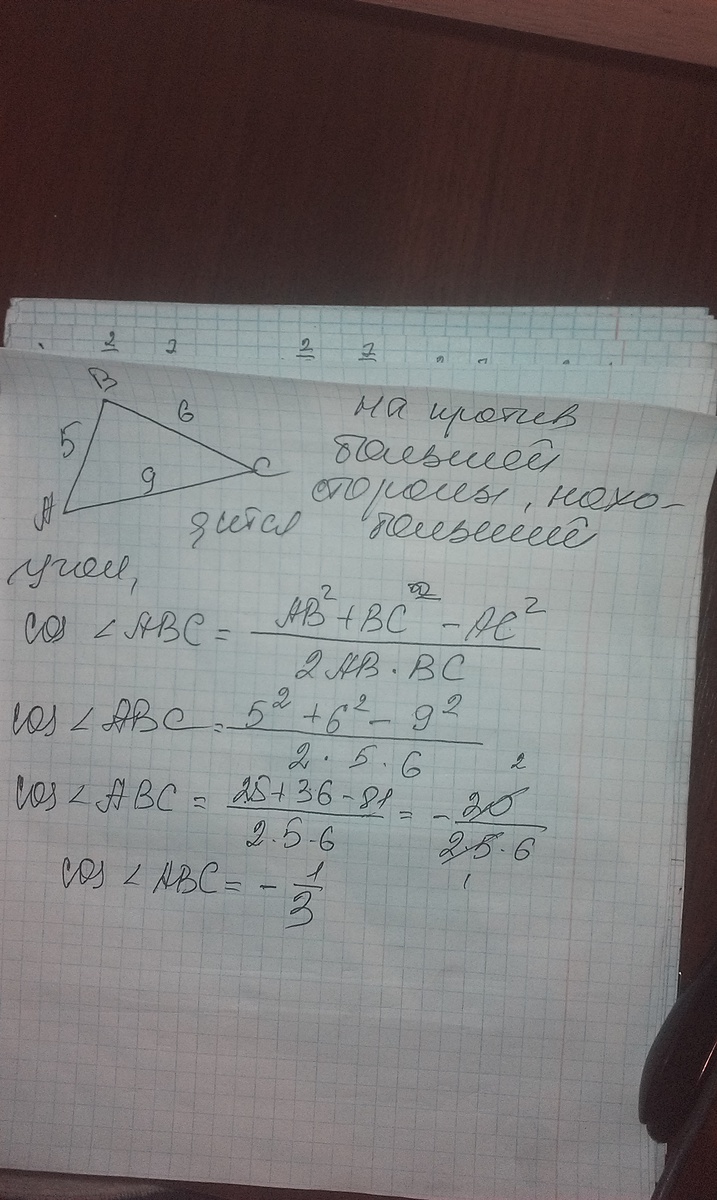 2 7 2 7
B
6
на против
5
большей
9
C
стороны, нахо-
A
дится большший
угол,
cos ∠ABC = (AB² + BC² - AC²) / (2AB · BC)
cos ∠ABC = (5² + 6² - 9²) / (2 · 5 · 6)
cos ∠ABC = (25+36-81) / (2·5·6) = - 20 / (2·5·6)
2
1
cos ∠ABC = - 1/3